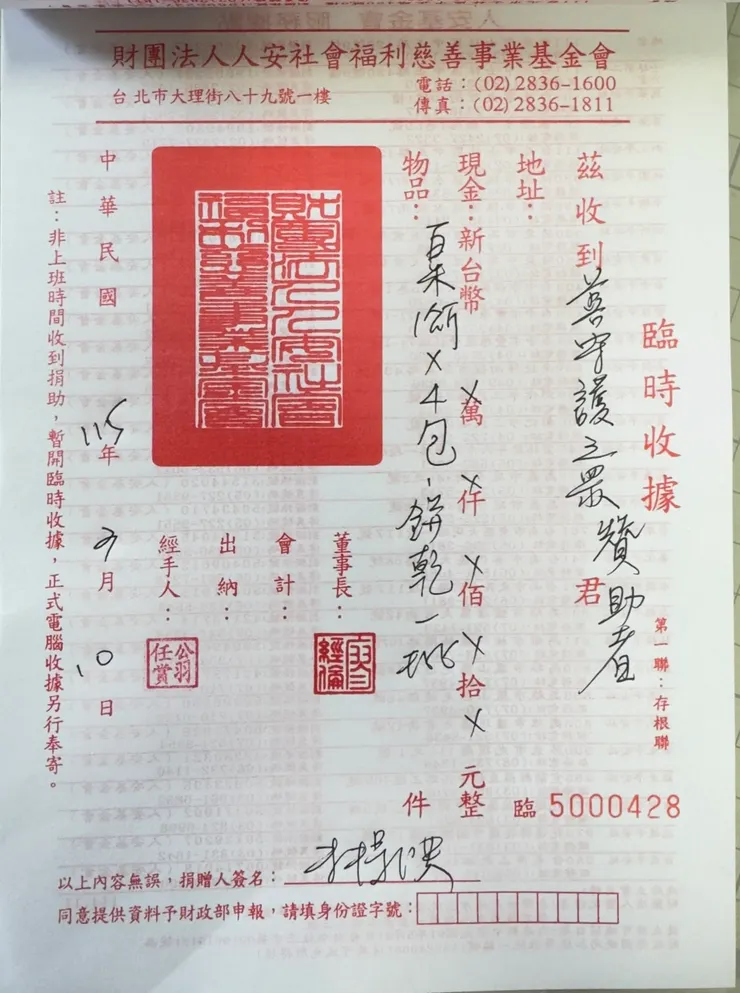 財團法人人安社會福利慈善事業基金會
台北市大理街八十九號一樓
電話：(02)2836-1600
傳真：(02)2836-1811
臨時收據
第一聯：存根聯
臨 5000428
茲收到善守護之眾贊助者君
地址：
現金：新台幣 X萬 X仟 X佰 X拾 X 元整
物品： X4包、餅乾一批 件
財團法人人安社會福利慈善事業基金會
董事長：
會計：
出納：
經手人：
公羽任賞
中華民國 115年 月 10日
註：非上班時間收到捐助，暫開臨時收據，正式電腦收據另行奉寄。
以上內容無誤，捐贈人簽名：
同意提供資料予財政部申報，請填身份證字號：